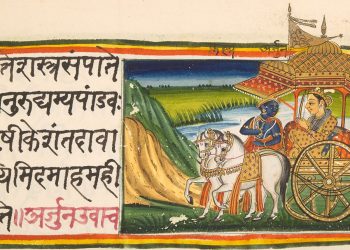 कृष्ण अर्जुन
तेशस्त्रसंपाते
नुरुद्यम्यपांडवः
षीकेशंतदावा
यमिदमाहमही
ते॥अर्जुनउवाच